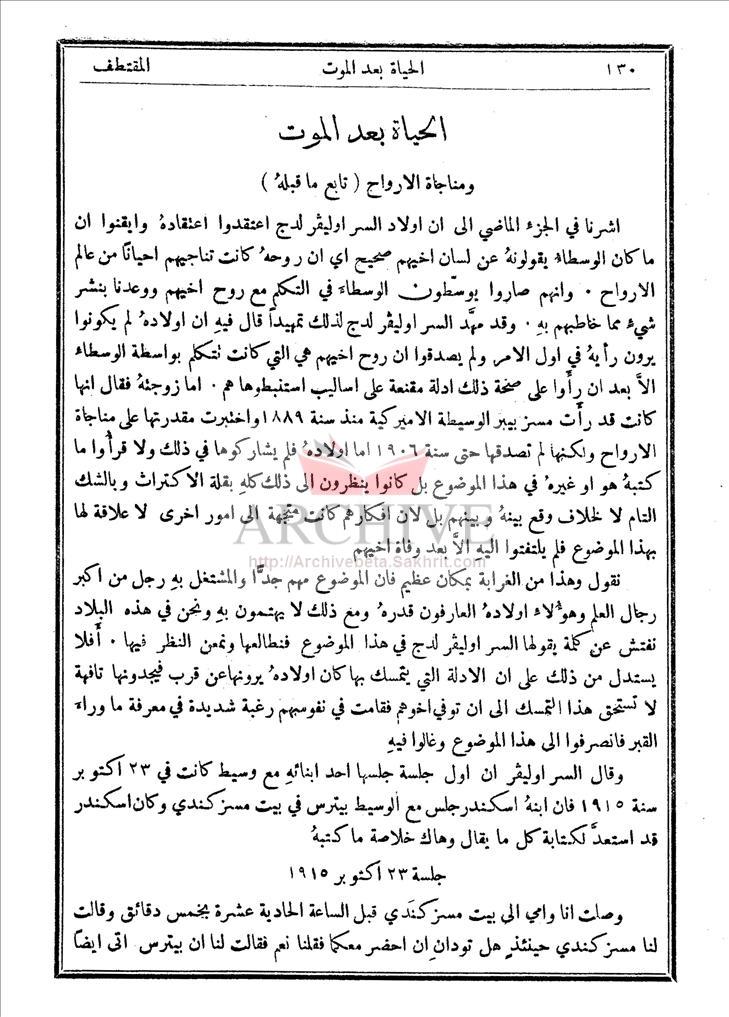 ١٣٠ الحياة بعد الموت المقتطف
الحياة بعد الموت
ومناجاة الارواح ( تابع ما قبلهُ )
اشرنا في الجزء الماضي الى ان اولاد السر اوليڤر لدج اعتقدوا اعتقادهُ وايقنوا ان
ما كان الوسطاء يقولونهُ عن لسان اخيهم صحيح اي ان روحهُ كانت تناجيهم احيانًا من عالم
الارواح ٠ وانهم صاروا يوسّطون الوسطاء في التكلم مع روح اخيهم ووعدنا بنشر
شيء مما خاطبهم بهِ ٠ وقد مهَّد السر اوليڤر لدج لذلك تمهيدًا قال فيهِ ان اولادهُ لم يكونوا
يرون رأيهُ في اول الامر ولم يصدقوا ان روح اخيهم هي التي كانت تتكلم بواسطة الوسطاء
الاَّ بعد ان رأَوا على صحة ذلك ادلة مقنعة على اساليب استنبطوها هم ٠ اما زوجتهُ فقال انها
كانت قد رأَت مسز بيبر الوسيطة الاميركية منذ سنة ١٨٨٩ واختبرت مقدرتها على مناجاة
الارواح ولكنها لم تصدقها حتى سنة ١٩٠٦ اما اولادهُ فلم يشاركوها في ذلك ولا قرأُوا ما
كتبهُ هو او غيرهُ في هذا الموضوع بل كانوا ينظرون الى ذلك كلهِ بقلة الاكتراث وبالشك
التام لا لخلاف وقع بينهُ وبينهم بل لان افكارهم كانت متجهة الى امور اخرى لا علاقة لها
بهذا الموضوع فلم يلتفتوا اليهِ الاَّ بعد وفاة اخيهم
ARCHIVE
http://Archivebeta.Sakhrit.com
نقول وهذا من الغرابة بمكان عظيم فان الموضوع مهم جدًّا والمشتغل بهِ رجل من اكبر
رجال العلم وهوءُلاء اولادهُ العارفون قدرهُ ومع ذلك لا يهتمون بهِ ونحن في هذه البلاد
نفتش عن كلمة يقولها السر اوليڤر لدج في هذا الموضوع فنطالعها ونمعن النظر فيها ٠ أَفلا
يستدل من ذلك على ان الادلة التي يتمسك بها كان اولادهُ يرونها عن قرب فيجدونها تافهة
لا تستحق هذا التمسك الى ان توفي اخوهم فقامت في نفوسهم رغبة شديدة في معرفة ما وراء
القبر فانصرفوا الى هذا الموضوع وغالوا فيهِ
وقال السر اوليڤر ان اول جلسة جلسها احد ابنائهِ مع وسيط كانت في ٢٣ اكتوبر
سنة ١٩١٥ فان ابنهُ اسكندر جلس مع الوسيط بيترس في بيت مسز كندي وكان اسكندر
قد استعدَّ لكتابة كل ما يقال وهاك خلاصة ما كتبهُ
جلسة ٢٣ اكتوبر ١٩١٥
وصلت انا وامي الى بيت مسز كنَدي قبل الساعة الحادية عشرة بخمس دقائق وقالت
لنا مسز كندي حينئذٍ هل تودانِ ان احضر معكما فقلنا نعم فقالت لنا ان بيترس اتى ايضًا